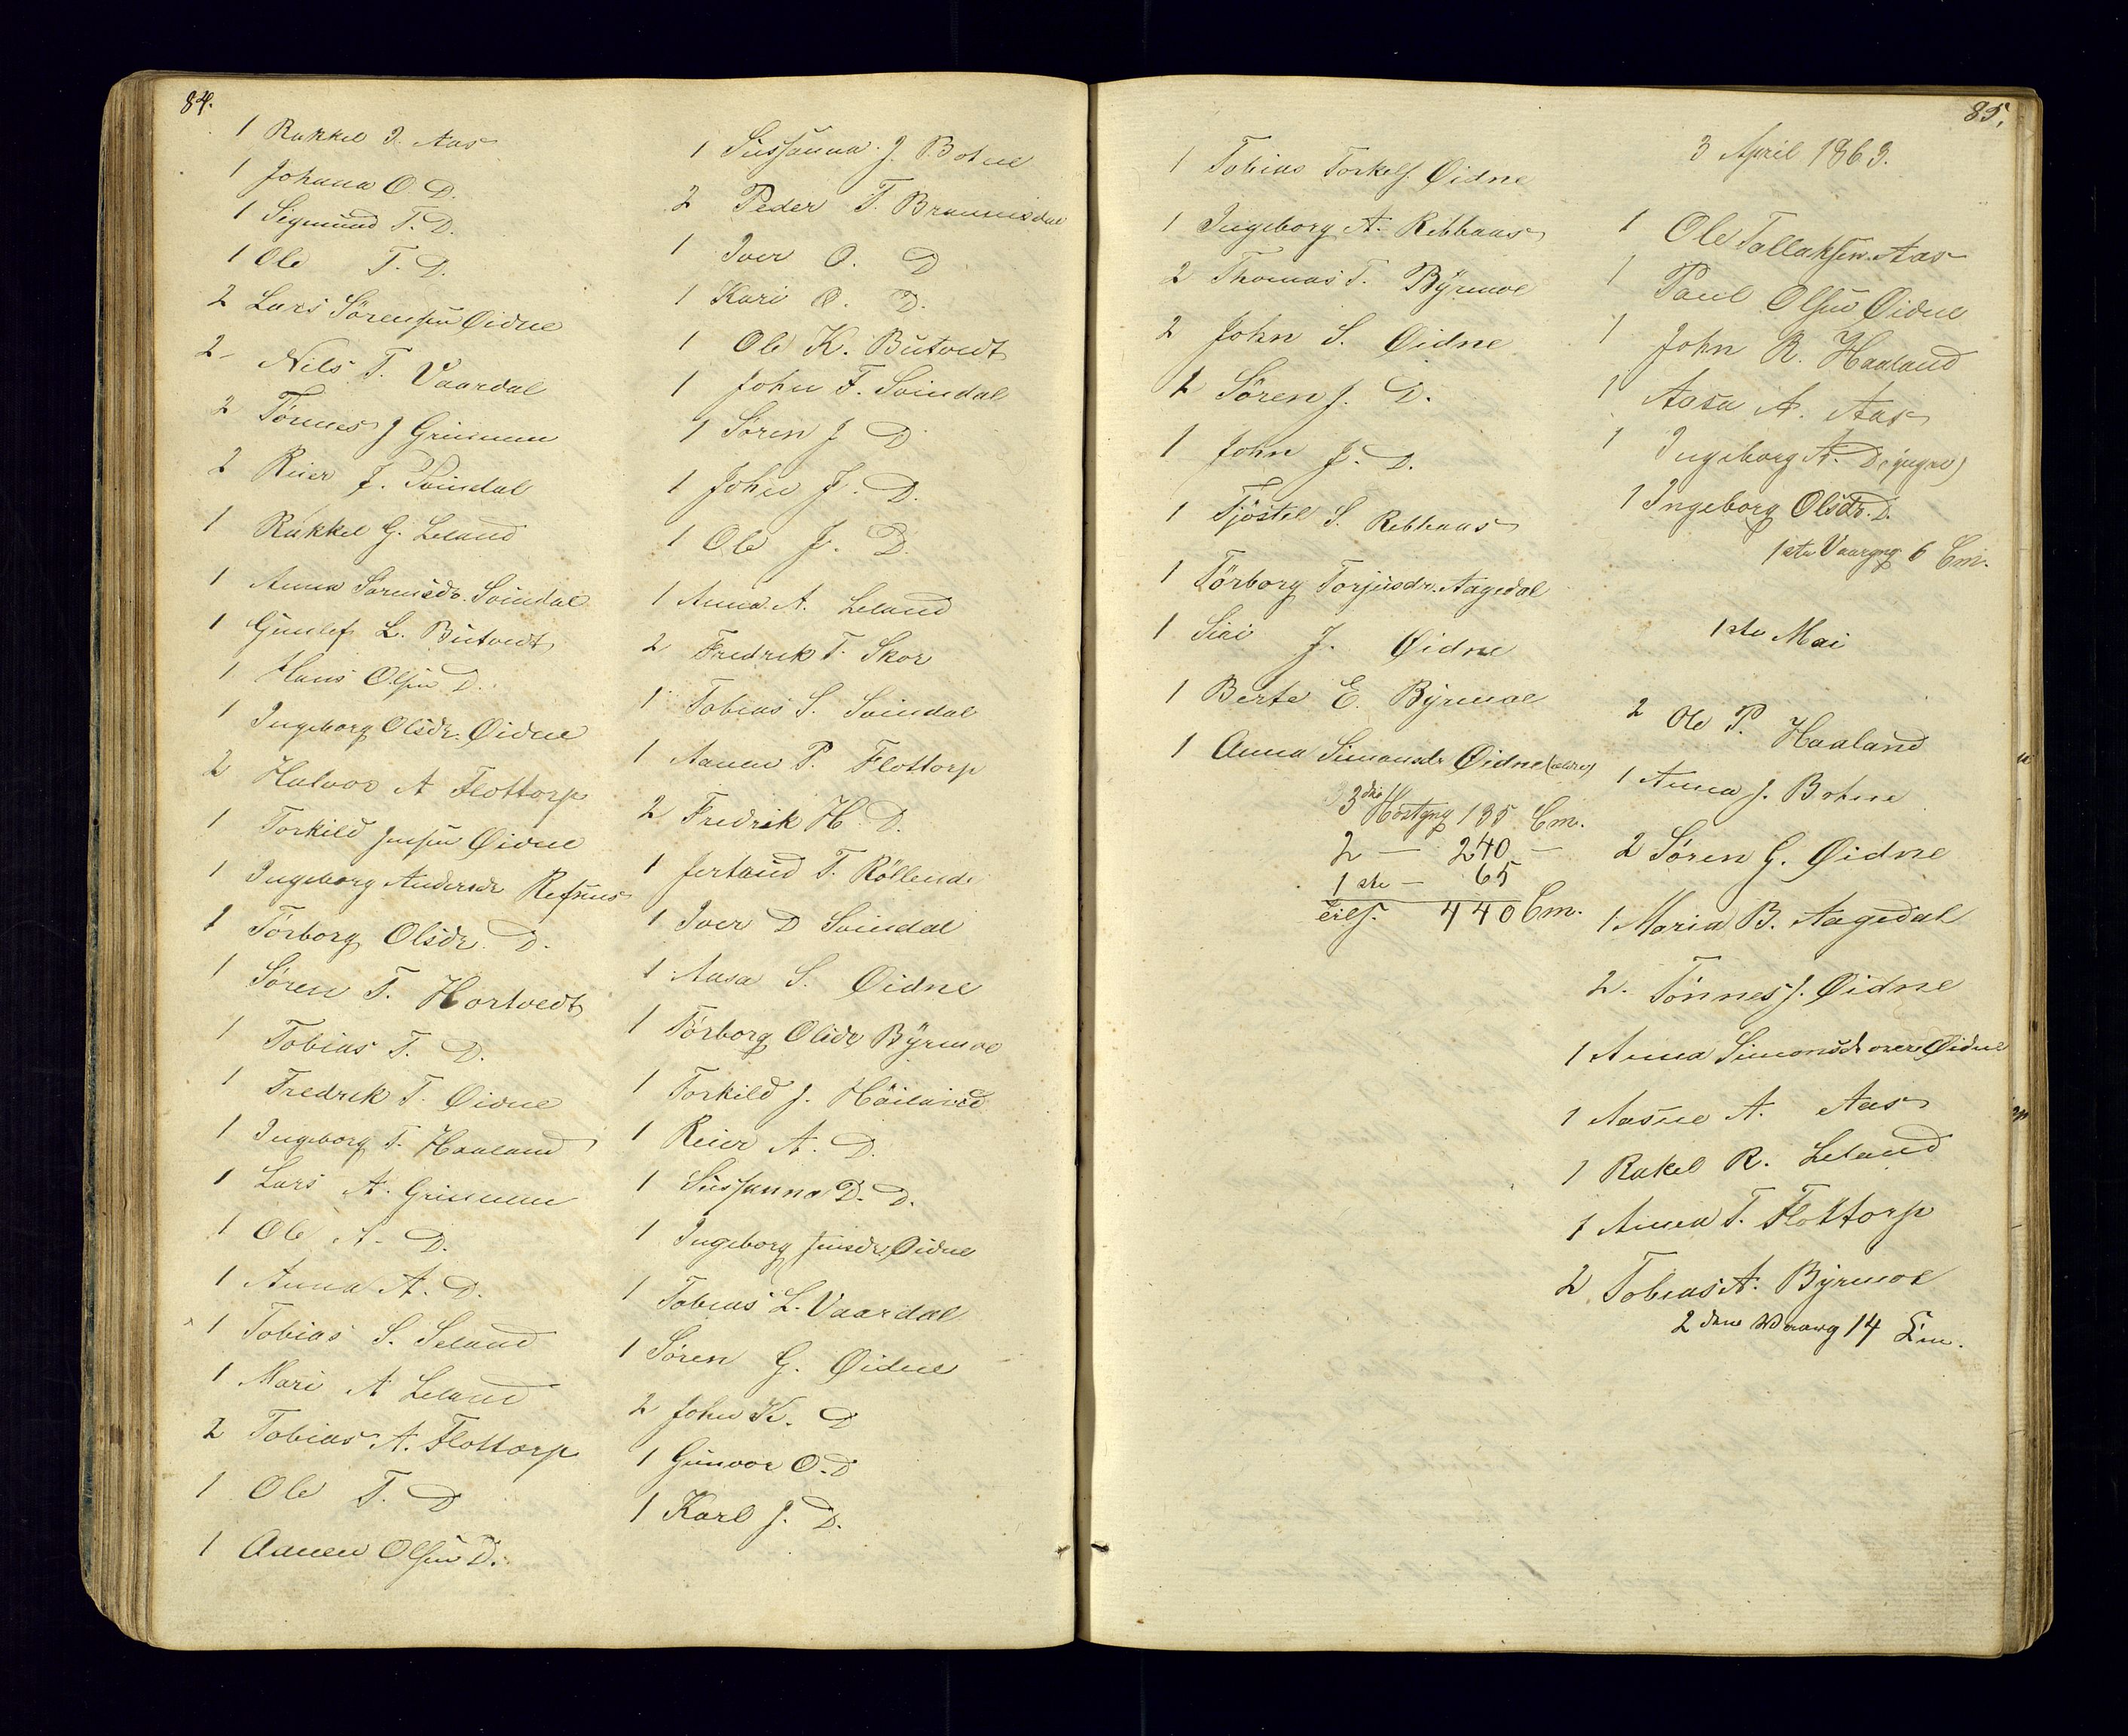 84.
1 Rakkel J. Aas
1 Johana O. D.
1 Sigmund T. D.
1 Ole T. D.
2 Lars Sörensen Öidne
2 Nils T. Vaardal
2 Tönnes J Grimmen
2 Reier J. Svindal
1 Rakkel G. Leland
1 Anna Sörensdr. Svindal
1 Gunlef L. Butvedt
1 Hans Olsen D.
1 Ingeborg Olsdr. Öidne
2 Halvor A Flottorp
1 Torkild Jensen Öidne
1 Ingeborg Andersdr Refsnes
1 Törborg Olsdr. D.
1 Sören T. Hortvedt
1 Tobias T. D.
1 Fredrek T. Öidne
1 Ingeborg T. Haaland
1 Lars A. Grimmen
1 Ole A. D.
1 Anna A. D.
1 Tobias S. Leland
1 Mari A Leland
2 Tobias A. Flottorp
1 Ole T. D
1 Aanen Olsen D.
1 Sussanna J. Botne
2 Peder T. Braunisdal
1 Iver O. D
1 Kari O. D.
1 Ole K. Butvedt
1 John F. Svindal
1 Sören J D
1 John J. D.
1 Ole J. D.
1 Anna A. Leland
2 Fredrek T. Skor
1 Tobias S. Svindal
1 Aanen P. Flottorp
2 Fredrek H. D.
1 Jertrud T. Röllend
1 Iver D Svindal
1 Aasa S. Öidne
1 Törborg Olsdr Byrmoe
1 Torkild J. Höiland
1 Reier A. D.
1 Sussanna D. D.
1 Ingeborg Jensdr. Öidne
1 Tobias L. Vaardal
1 Sören G. Öidne
2 John K. D
1 Gunvor O. D
1 Karl J. D.
85.
1 Tobias Torkels. Öidne
1 Ingeborg A. Rebbaas
2 Thomas T. Byrmoe
2 John S. Öidne
1 Sören J. D.
1 John J. D.
1 Tjöstel S. Rebbaas
1 Törborg Torjusdr. Aagedal
1 Siri J. Öidne
1 Berte E. Byrmoe
1 Anna Simonsdr Öidne (ældre)
3die Höstgng 135 Cm.
2 — 240 —
1ste — 65
Tils. 440 Cm.
3 April 1863.
1 Ole Tallaksen Aas
1 Paul Olsen Öidne
1 John R. Haaland
1 Aasa A. Aas
1 Ingeborg A. D. (yngre)
1 Ingeborg Olsdr. D.
1ste Vaargng 6 Cm.
1ste Mai
2 Ole P. Haaland
1 Anna J. Botne
2 Sören G. Öidne
1 Maria B. Aagedal
2. Tönnes J. Öidne
1 Anna Simonsdr Öidne
1 Aasne A. Aas
1 Rakel R. Leland
1 Anna T. Flottorp
2 Tobias A. Byrmoe
2den Vaarg 14 Cm.